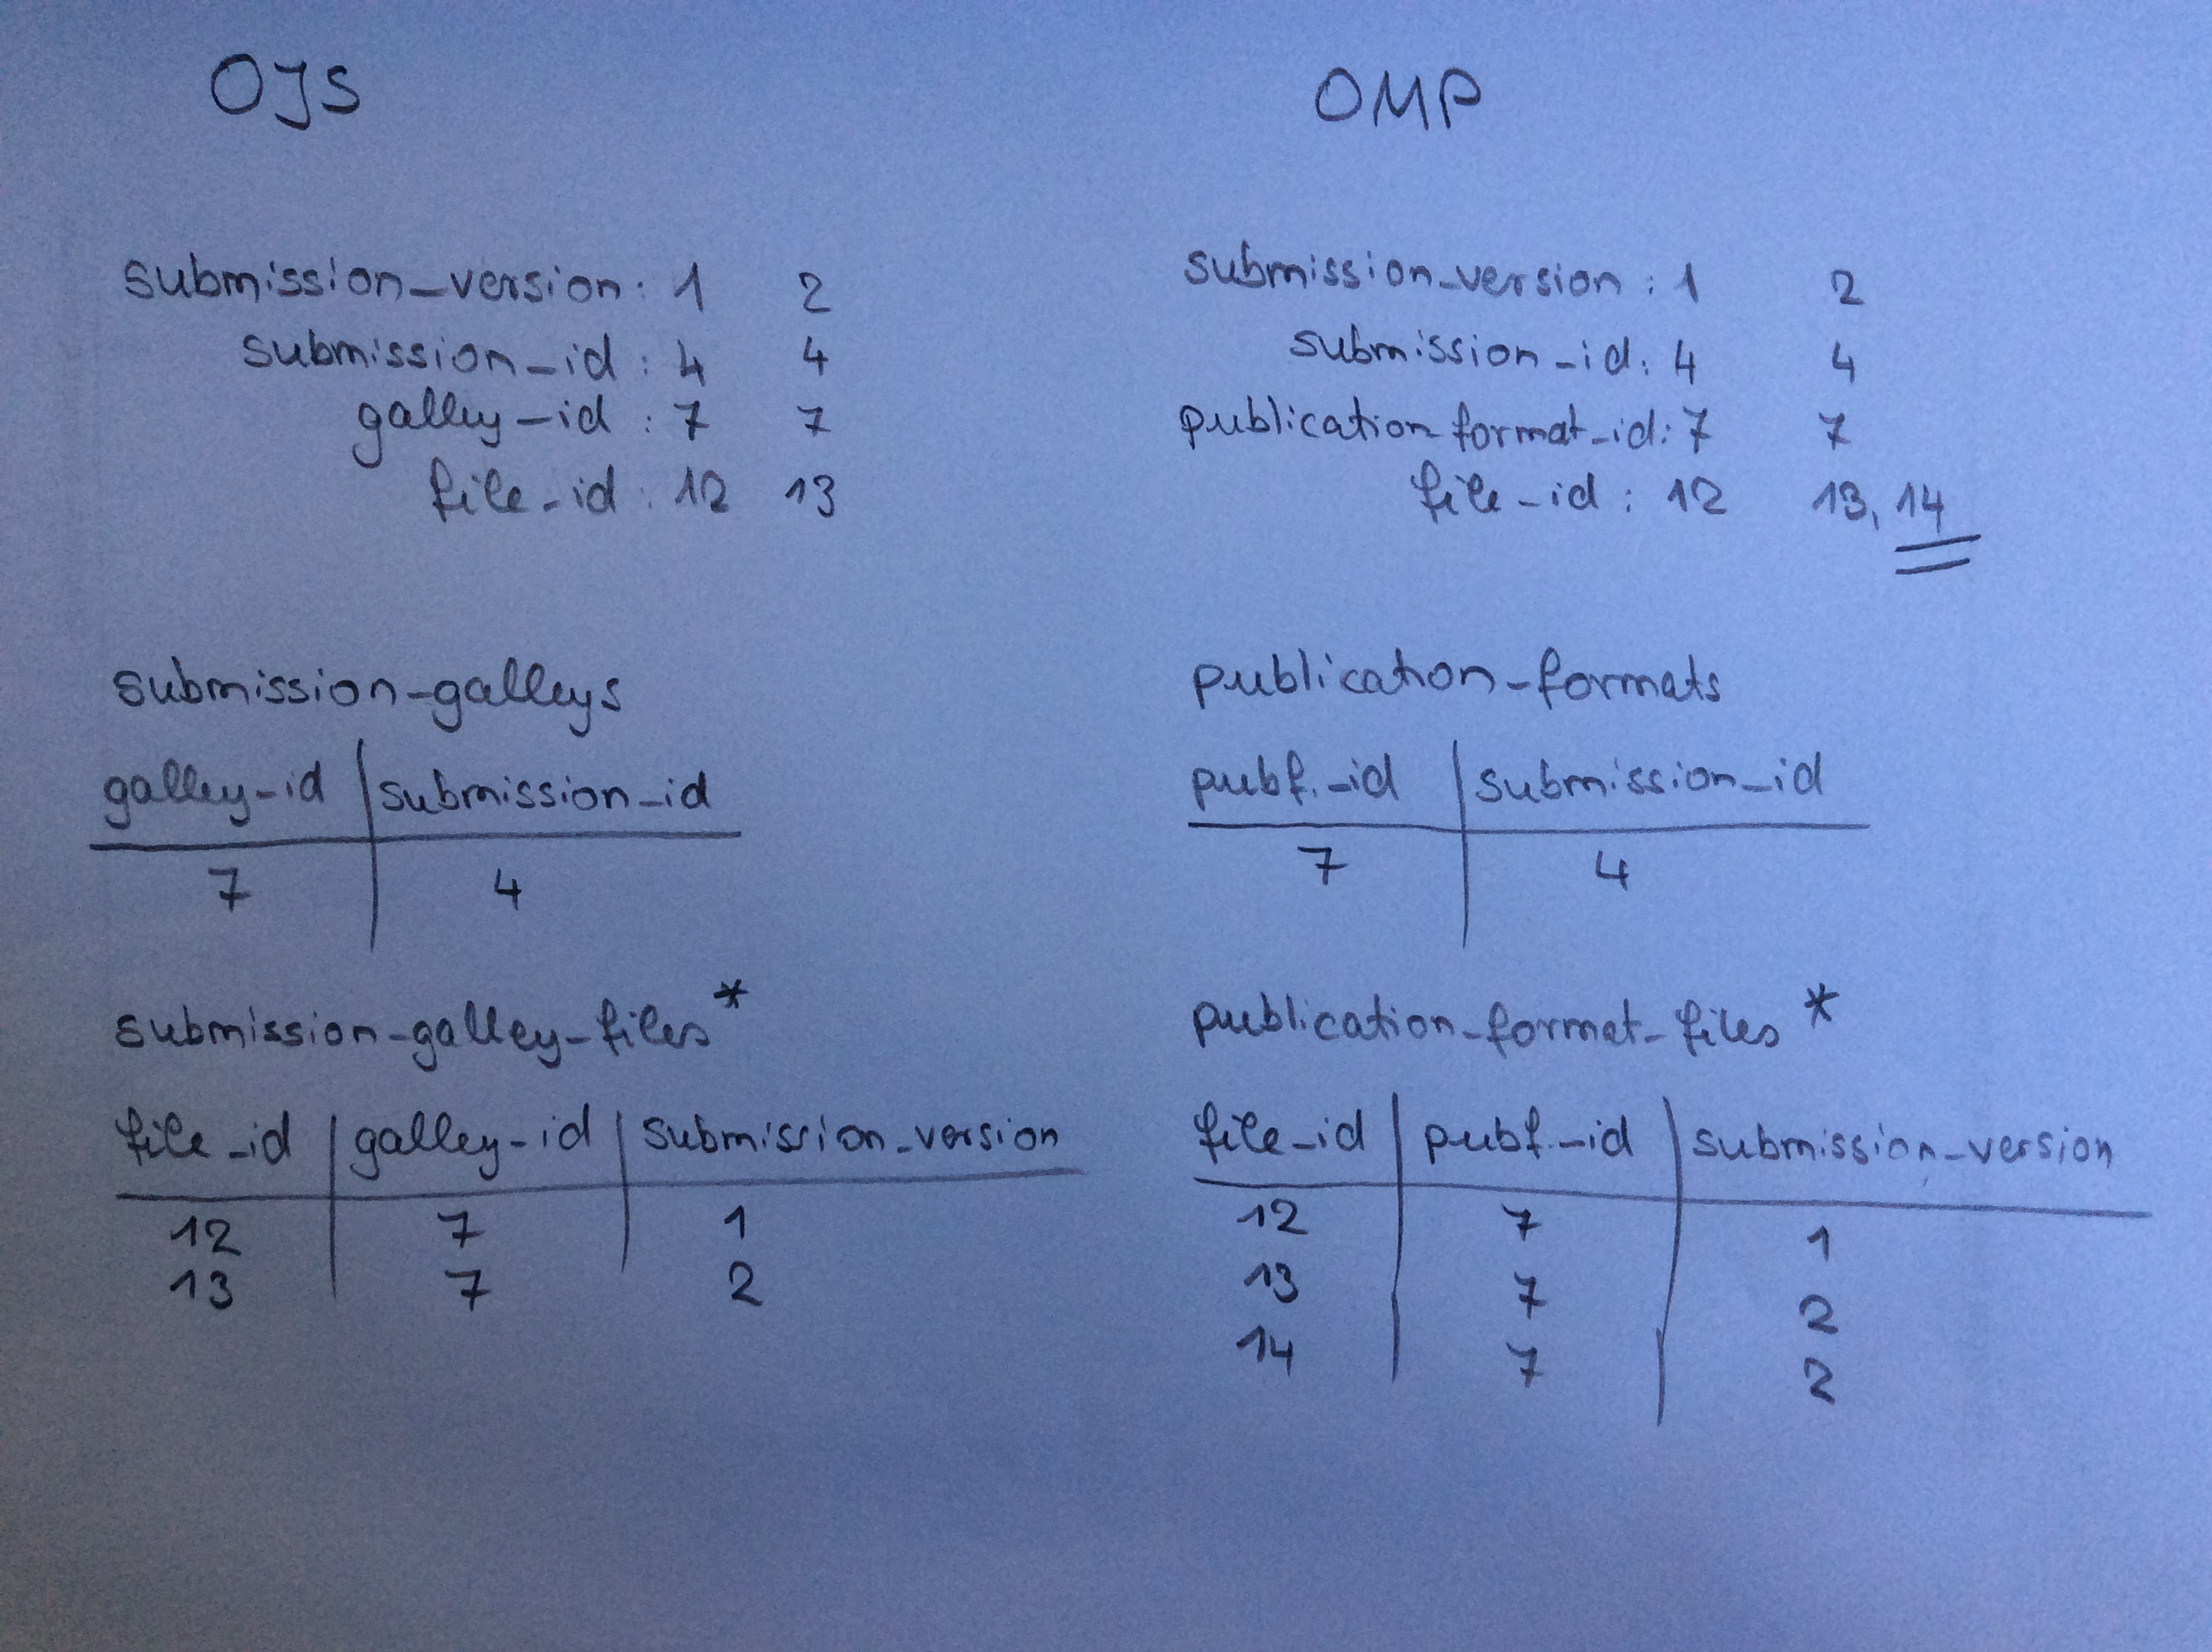 OJS
submission_version: 1 2
submission_id: 4 4
galley_id: 7 7
file_id: 12 13
submission_galleys
galley_id submission_id
7 4
submission_galley_files*
file_id galley_id submission_version
12 7 1
13 7 2
OMP
submission_version: 1 2
submission_id: 4 4
publication_format_id: 7 7
file_id: 12 13, 14
publication_formats
pubf._id submission_id
7 4
publication_format_files*
file_id pubf._id submission_version
12 7 1
13 7 2
14 7 2